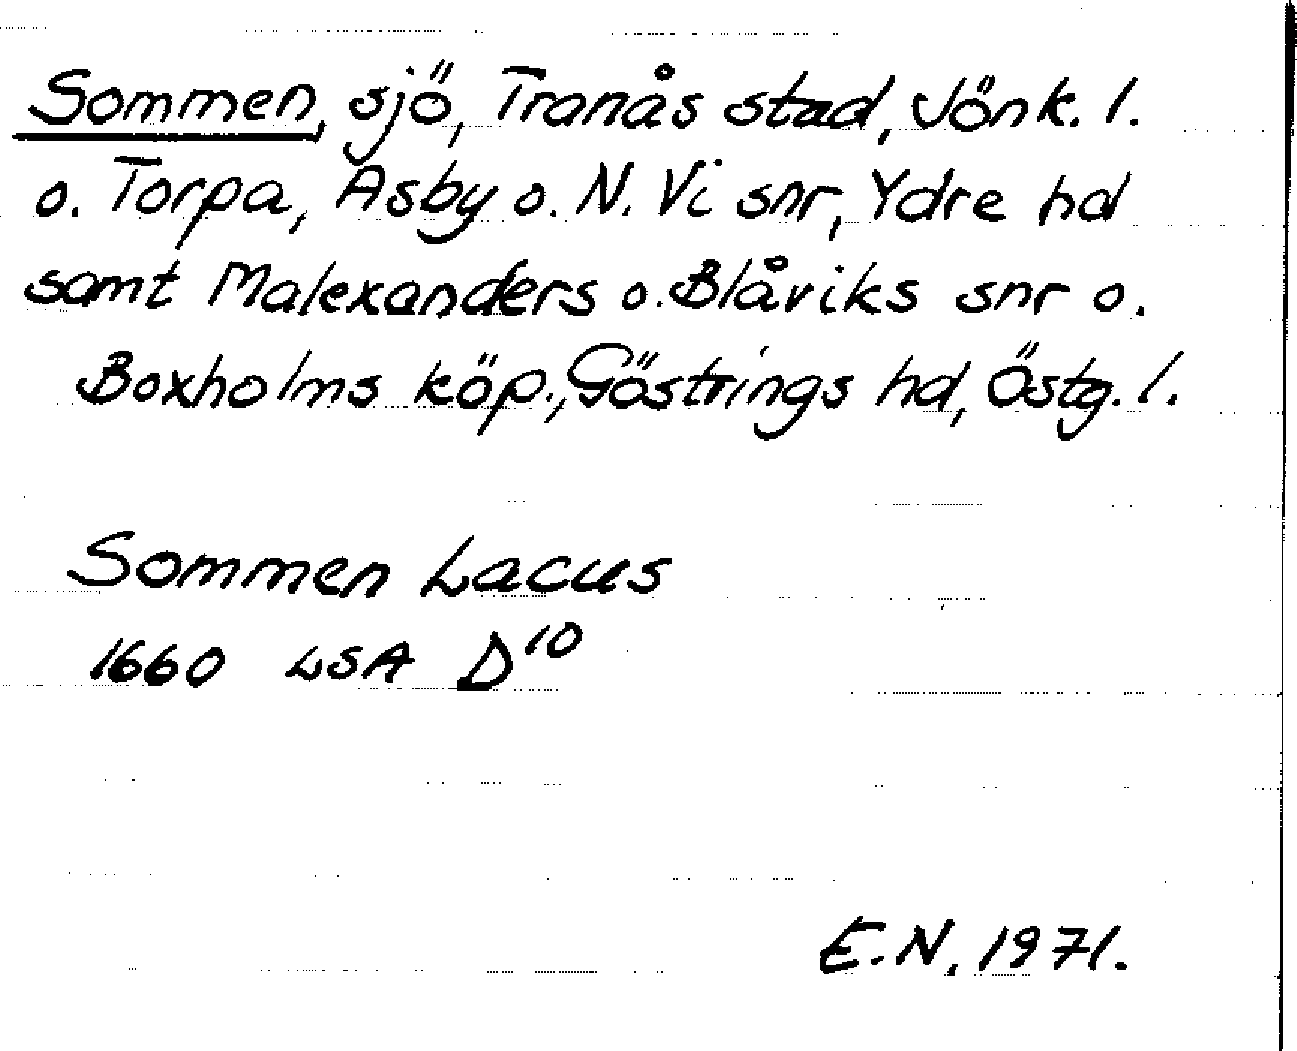 Sommen, sjö, Tranås stad, Jönk. l.
o. Torpa, Asby o. N. Vi snr, Ydre hd
samt Malexanders o. Blåviks snr o.
Boxholms köp., Göstrings hd, Östg. l.
Sommen Lacus
1660 LSA D10
E.N. 1971.